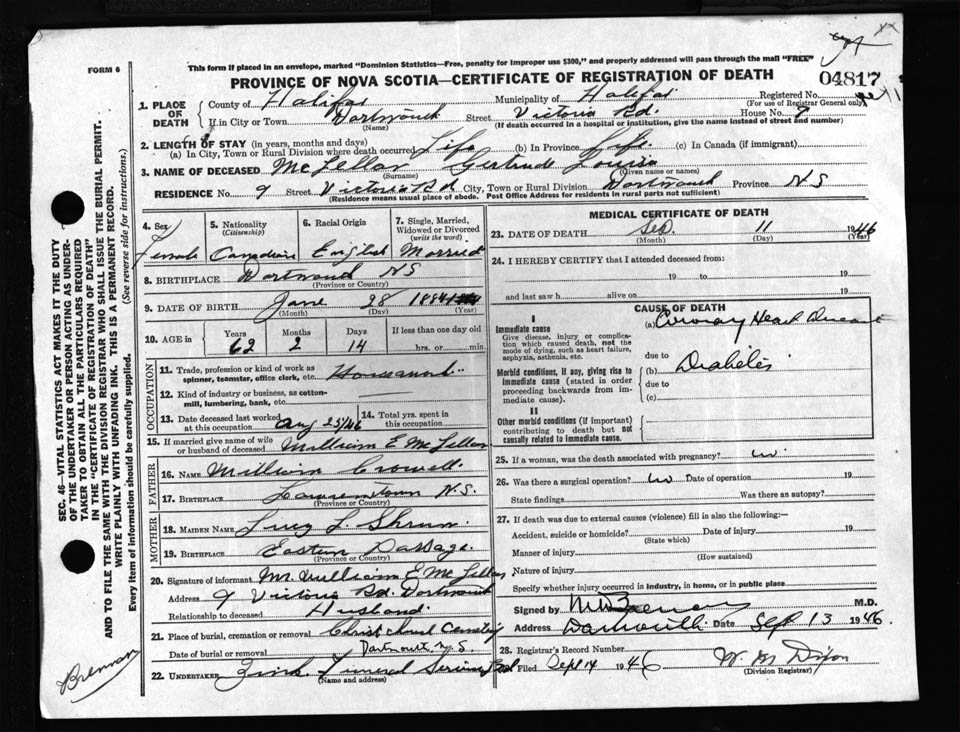 FORM 6
This form if placed in an envelope, marked "Dominion Statistics—Free, penalty for improper use $300," and properly addressed will pass through the mail "FREE"
PROVINCE OF NOVA SCOTIA—CERTIFICATE OF REGISTRATION OF DEATH
04817
1. PLACE OF DEATH
County of Halifax Municipality of Halifax Registered No.
(For use of Registrar General only)
If in City or Town Dartmouth Street Victoria Rd. House No. 9
(Name) (If death occurred in a hospital or institution, give the name instead of street and number)
2. LENGTH OF STAY (in years, months and days)
(a) In City, Town or Rural Division where death occurred Life (b) In Province Life (c) In Canada (if immigrant)
3. NAME OF DECEASED McLellan Gertrude Louisa
(Surname) (Given name or names)
RESIDENCE No. 9 Street Victoria Rd City, Town or Rural Division Dartmouth Province N S
(Residence means usual place of abode. Post Office Address for residents in rural parts not sufficient)
4. Sex
Female
5. Nationality
(Citizenship)
Canadian
6. Racial Origin
English
7. Single, Married, Widowed or Divorced
(write the word)
Married
8. BIRTHPLACE Dartmouth N S
(Province or Country)
9. DATE OF BIRTH June 28 1884
(Month) (Day) (Year)
10. AGE in
Years Months Days If less than one day old
62 2 14 hrs. or min.
OCCUPATION
11. Trade, profession or kind of work as spinner, teamster, office clerk, etc. Housework
12. Kind of industry or business, as cotton-mill, lumbering, bank, etc.
13. Date deceased last worked at this occupation Aug 25/46
14. Total yrs. spent in this occupation
15. If married give name of wife or husband of deceased William E McLellan
FATHER
16. NAME William Crowell
17. BIRTHPLACE Lawrencetown N.S.
(Province or Country)
MOTHER
18. MAIDEN NAME Lucy L. Shrum
19. BIRTHPLACE Eastern Passage.
(Province or Country)
20. Signature of informant Mr. William E McLellan
Address 9 Victoria Rd. Dartmouth
Relationship to deceased Husband.
21. Place of burial, cremation or removal Christ Church Cemetery
Date of burial or removal Dartmouth, N. S.
22. UNDERTAKER Zinck Funeral Service
(Name and address)
MEDICAL CERTIFICATE OF DEATH
23. DATE OF DEATH Sep. 11 1946
(Month) (Day) (Year)
24. I HEREBY CERTIFY that I attended deceased from:
19 to 19
and last saw h alive on 19
CAUSE OF DEATH
I
Immediate cause
Give disease, injury or complication which caused death, not the mode of dying, such as heart failure, asphyxia, asthenia, etc.
(a) Coronary Heart Disease
due to
Morbid conditions, if any, giving rise to immediate cause (stated in order proceeding backwards from immediate cause).
(b) Diabetes
due to
(c)
II
Other morbid conditions (if important) contributing to death but not causally related to immediate cause.
25. If a woman, was the death associated with pregnancy? no.
26. Was there a surgical operation? no Date of operation 19
State findings Was there an autopsy?
27. If death was due to external causes (violence) fill in also the following:—
Accident, suicide or homicide? Date of injury 19
(State which)
Manner of injury
(How sustained)
Nature of injury
Specify whether injury occurred in industry, in home, or in public place
Signed by M.D.
Address Dartmouth Date Sep 13 1946.
28. Registrar's Record Number
Filed Sept 14 1946 W. M. Dixon
(Division Registrar)
SEC. 46—VITAL STATISTICS ACT MAKES IT THE DUTY OF THE UNDERTAKER OR PERSON ACTING AS UNDERTAKER TO OBTAIN ALL THE PARTICULARS REQUIRED IN THE "CERTIFICATE OF REGISTRATION OF DEATH" AND TO FILE THE SAME WITH THE DIVISION REGISTRAR WHO SHALL ISSUE THE BURIAL PERMIT.
WRITE PLAINLY WITH UNFADING INK. THIS IS A PERMANENT RECORD.
Every item of information should be carefully supplied. (See reverse side for instructions.)
Brennan